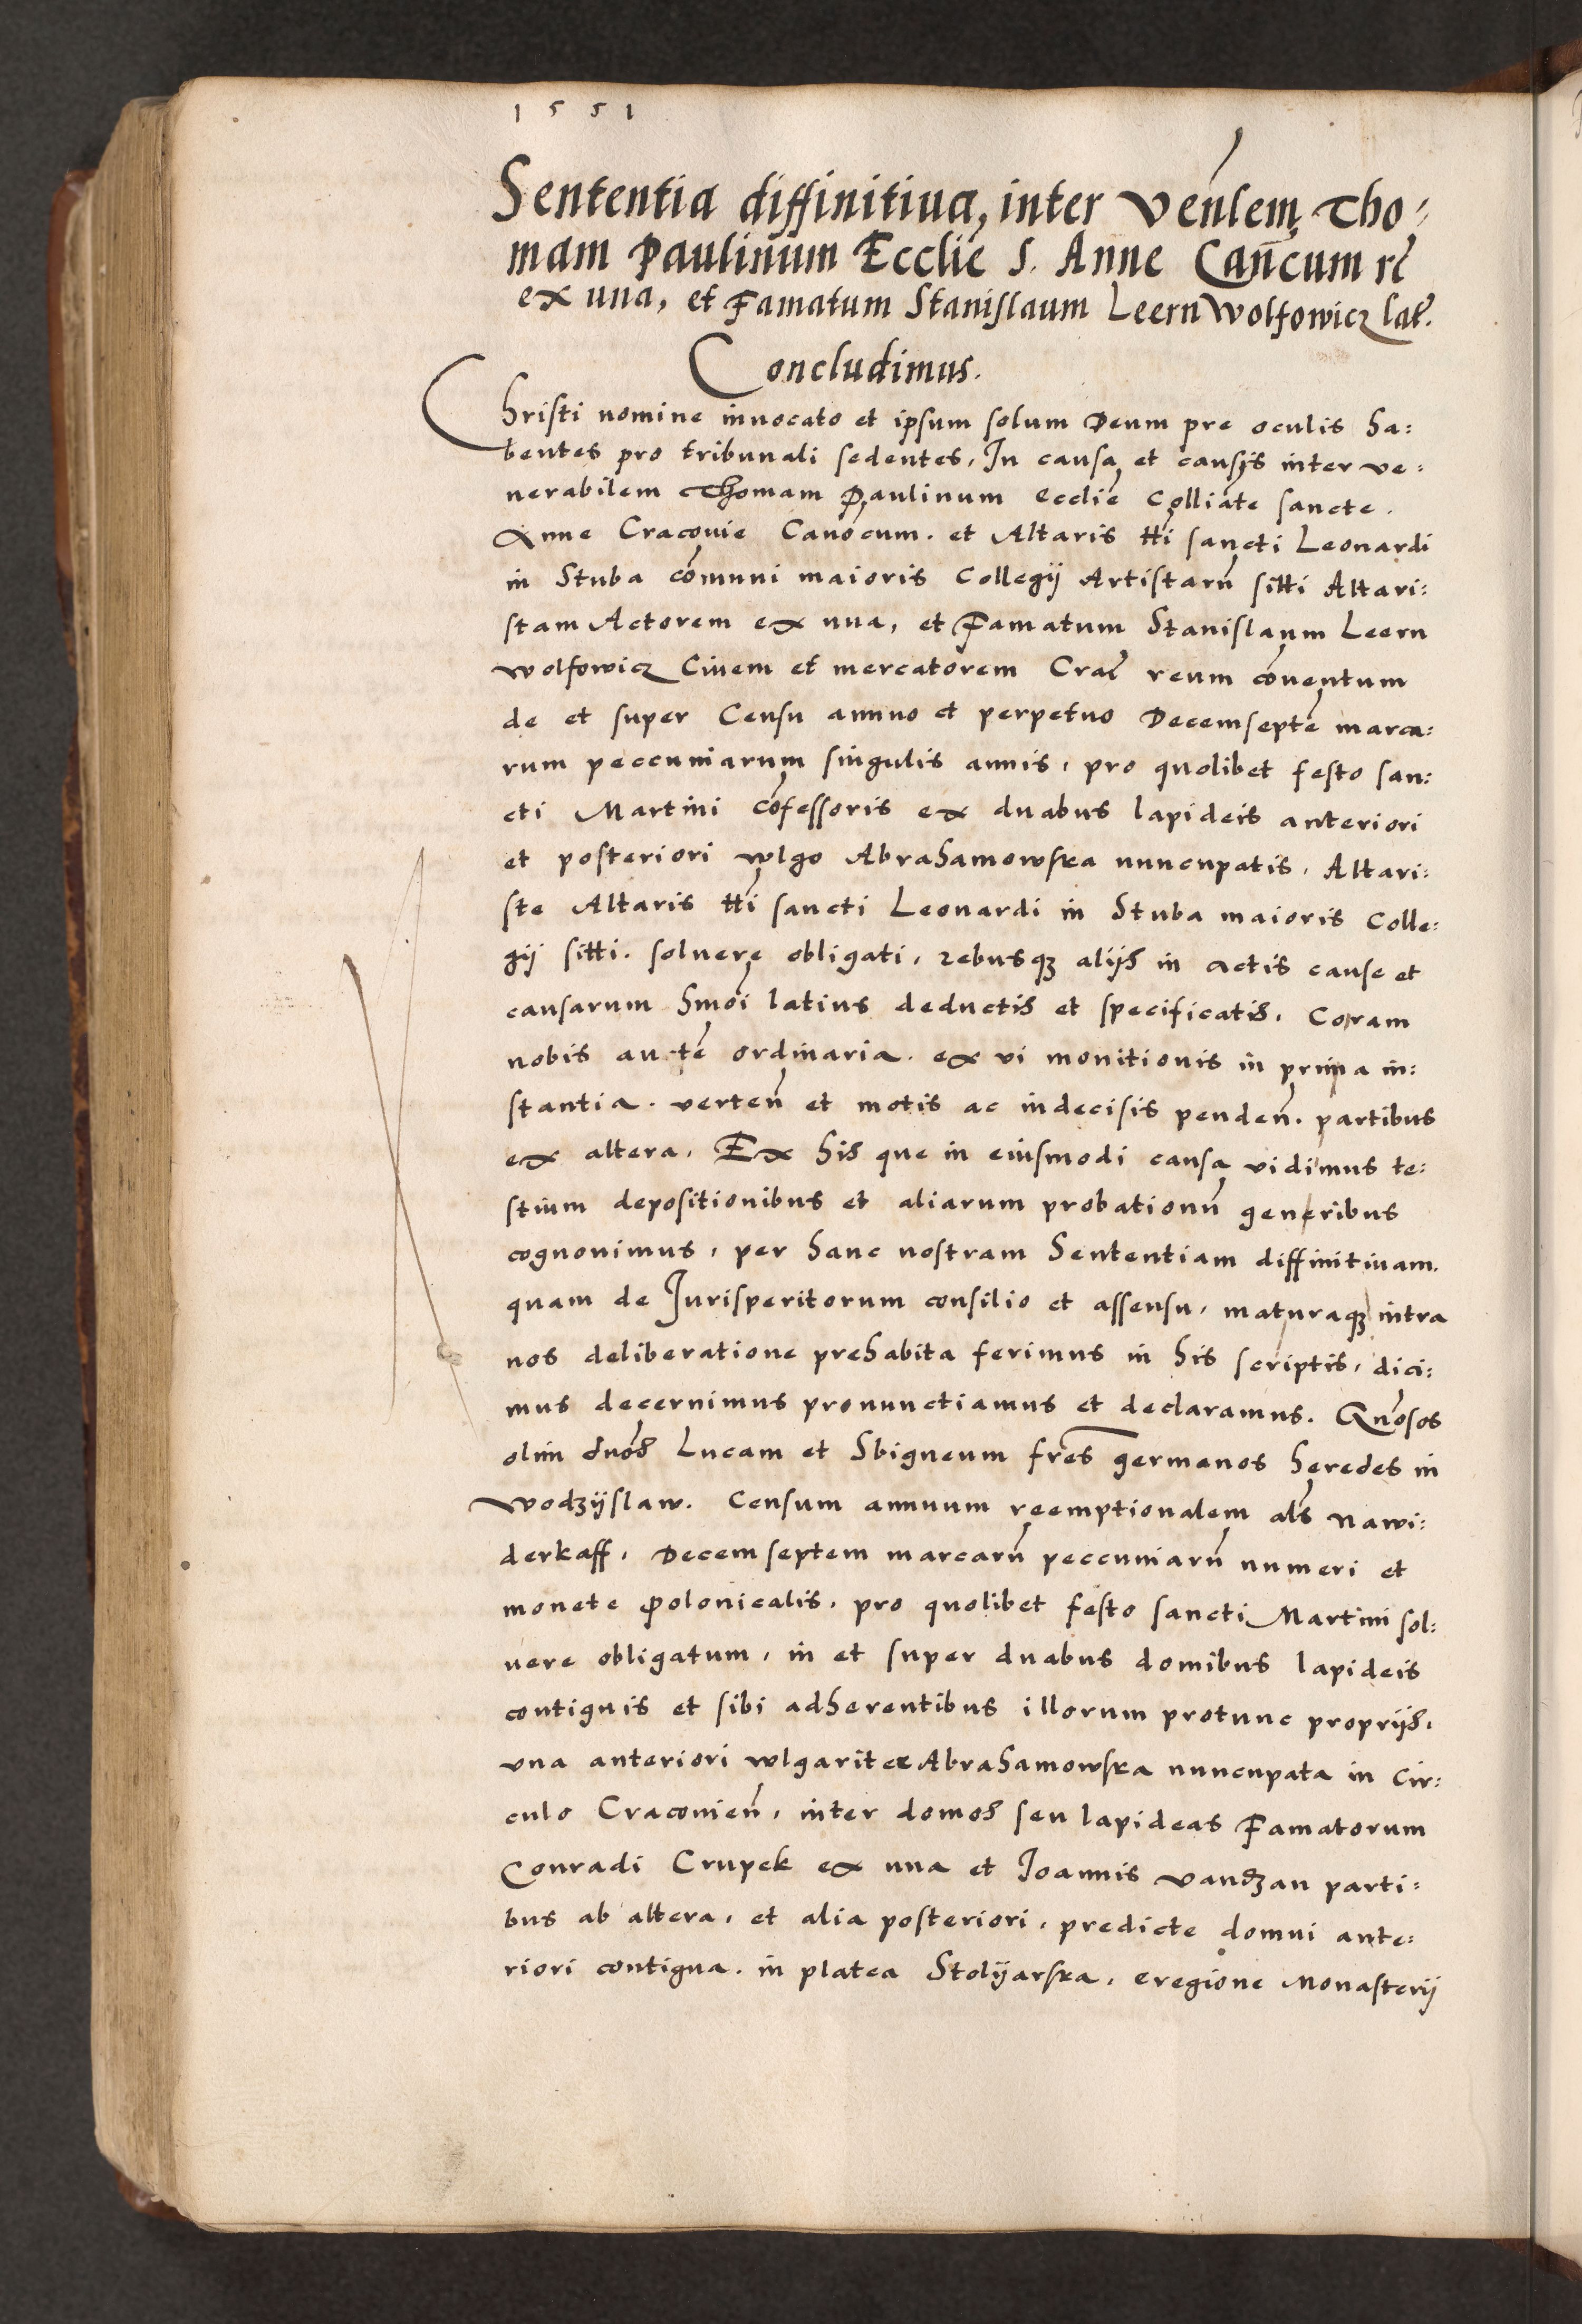 1551
Sententia diffinitiua, inter Ven̄lem Tho=
mam Paulinum Eccl̄ie S. Anne Can̄cum rc̄
ex una, et Famatum Stanislaum Leern Wolfowicz lat̄.
Concludimus.
Christi nomine inuocato et ipsum solum Deum pre oculis ha=
bentes pro tribunali sedentes, In causa et causis inter ve=
nerabilem Thomam Paulinum Eccl̄ie Collīate sancte.
Anne Cracouie Canōcum. et Altaris tt̄i sancti Leonardi
in Stuba cōmuni maioris Collegij Artistarū sitti Altari=
stam Actorem ex una, et Famatum Stanislaum Leern
wolfowicz Ciuem et mercatorem Crac̄ reum cōuentum
de et super Censu annuo et perpetuo Decemseptē marca=
rum peccuniarum singulis annis, pro quolibet festo san=
cti Martini cōfessoris ex duabus lapideis anteriori
et posteriori wlgo Abrahamowska nuncupatis, Altari=
ste Altaris tt̄i sancti Leonardi in Stuba maioris Colle=
gij sitti. soluere obligati, rebusqꝫ alijs in actis cause et
causarum hmōi latius deductis et specificatis. Coram
nobis auctē ordinaria. ex vi monitionis in prima in=
stantia. verteñ et motis ac indecisis pendeñ. partibus
ex altera. Ex his que in eiusmodi causa vidimus te=
stium depositionibus et aliarum probationū generibus
cognouimus, per hanc nostram Sententiam diffinitiuam.
quam de Jurisperitorum consilio et assensu, maturaqꝫ intra
nos deliberatione prehabita ferimus in his scriptis, dici=
mus decernimus pronunctiamus et declaramus. Gnōsos
olim dnōs Lucam et Sbigneum frēs germanos heredes in
wodzijslaw. Censum annuum reemptionalem al̄s nawi=
derkaff, Decemseptem marcarū peccuniarū numeri et
monete Polonicalis, pro quolibet festo sancti Martini sol=
uere obligatum, in et super duabus domibus lapideis
contiguis et sibi adherentibus illorum protunc proprijs,
una anteriori wlgariter Abrahamowska nuncupata in Cir=
culo Cracouieñ, inter domos seu lapideas Famatorum
Conradi Crupek ex una et Joannis Vandzan parti=
bus ab altera, et alia posteriori, predicte domui ante=
riori contigua. in platea Stolijarska, eregione Monasterij